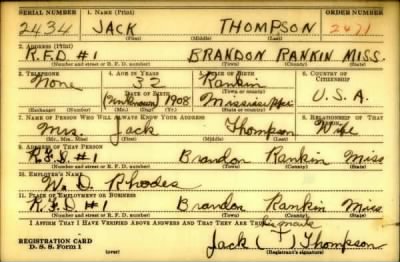 SERIAL NUMBER 1. NAME (Print) ORDER NUMBER
2434 JACK THOMPSON 2471
(First) (Middle) (Last)
2. ADDRESS (Print)
R.F.D #1 BRANDON RANKIN MISS.
(Number and street or R. F. D. number) (Town) (County) (State)
3. TELEPHONE 4. AGE IN YEARS 5. PLACE OF BIRTH 6. COUNTRY OF CITIZENSHIP
None 32 Rankin
(Town or county)
DATE OF BIRTH
(Unknown) 1908 Mississippi U.S.A.
(Exchange) (Number) (Mo.) (Day) (Yr.) (State or country)
7. NAME OF PERSON WHO WILL ALWAYS KNOW YOUR ADDRESS 8. RELATIONSHIP OF THAT PERSON
Mrs. Jack Thompson Wife
(Mr., Mrs., Miss) (First) (Middle) (Last)
9. ADDRESS OF THAT PERSON
R.F.D #1 Brandon Rankin Miss
(Number and street or R. F. D. number) (Town) (County) (State)
10. EMPLOYER'S NAME
W. D. Rhodes
11. PLACE OF EMPLOYMENT OR BUSINESS
R.F.D #1 Brandon Rankin Miss
(Number and street or R. F. D. number) (Town) (County) (State)
I AFFIRM THAT I HAVE VERIFIED ABOVE ANSWERS AND THAT THEY ARE TRUE.
REGISTRATION CARD
D. S. S. Form 1 Jack (T) Thompson
(over) (Registrant's signature)